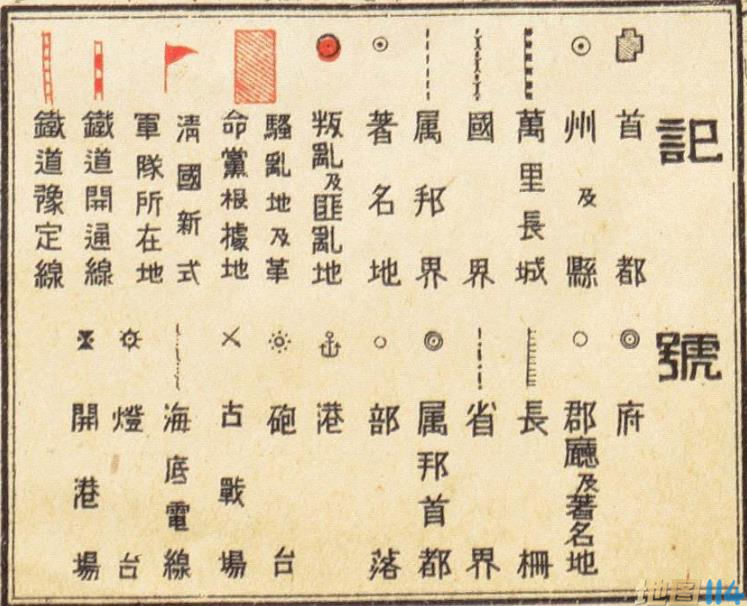 記號
首都
州及縣
萬里長城
國界
属邦界
著名地
叛亂及匪亂地
騷亂地及革
命黨根據地
淸國新式
軍隊所在地
鐵道開通線
鐵道豫定線
府
郡廳及著名地
長柵
省界
属邦首都
部落
港
砲台
古戰場
海底電線
燈台
開港場
地图114